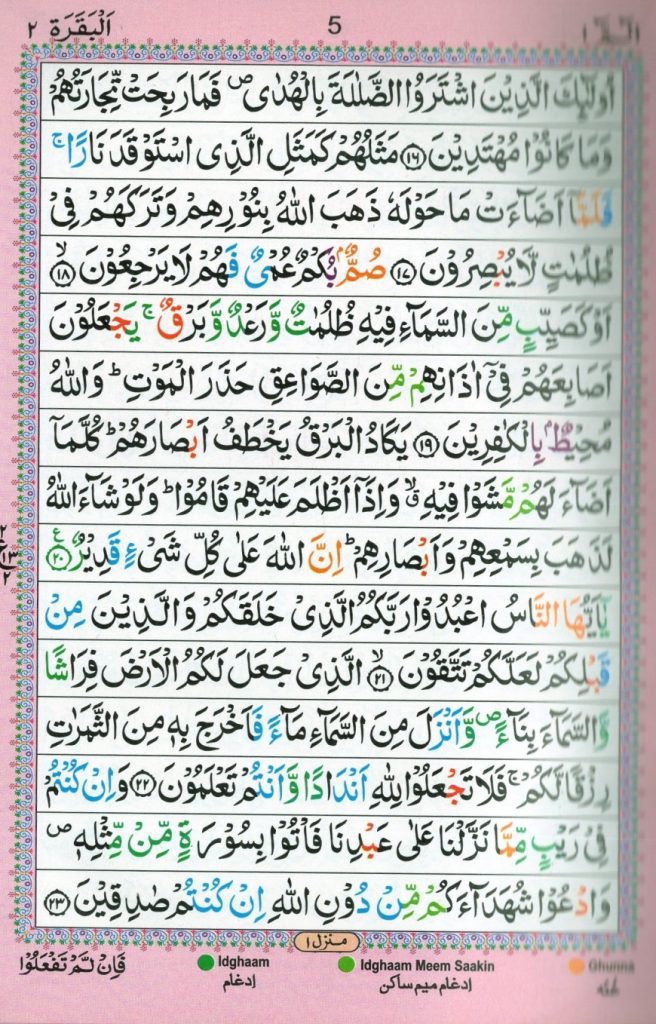 الٓمّٓ ١ 5 اَلْبَقَرَة ٢
اُولٰٓئِكَ الَّذِيْنَ اشْتَرَوُا الضَّلٰلَةَ بِالْهُدٰى ۖ فَمَا رَبِحَتْ تِّجَارَتُهُمْ
وَمَا كَانُوْا مُهْتَدِيْنَ ۝١٦ مَثَلُهُمْ كَمَثَلِ الَّذِى اسْتَوْقَدَ نَارًا ۚ
فَلَمَّاۤ اَضَآءَتْ مَا حَوْلَهٗ ذَهَبَ اللّٰهُ بِنُوْرِهِمْ وَتَرَكَهُمْ فِىْ
ظُلُمٰتٍ لَّا يُبْصِرُوْنَ ۝١٧ صُمٌّۢ بُكْمٌ عُمْىٌ فَهُمْ لَا يَرْجِعُوْنَ ۙ۝١٨
اَوْ كَصَيِّبٍ مِّنَ السَّمَآءِ فِيْهِ ظُلُمٰتٌ وَّرَعْدٌ وَّبَرْقٌ ۚ يَجْعَلُوْنَ
اَصَابِعَهُمْ فِىْۤ اٰذَانِهِمْ مِّنَ الصَّوَاعِقِ حَذَرَ الْمَوْتِ ؕ وَاللّٰهُ
مُحِيْطٌۢ بِالْكٰفِرِيْنَ ۝١٩ يَكَادُ الْبَرْقُ يَخْطَفُ اَبْصَارَهُمْ ؕ كُلَّمَاۤ
اَضَآءَ لَهُمْ مَّشَوْا فِيْهِ ۙۗ وَاِذَاۤ اَظْلَمَ عَلَيْهِمْ قَامُوْا ؕ وَلَوْ شَآءَ اللّٰهُ
لَذَهَبَ بِسَمْعِهِمْ وَاَبْصَارِهِمْ ؕ اِنَّ اللّٰهَ عَلٰى كُلِّ شَىْءٍ قَدِيْرٌ ۝٢٠ ع
يٰۤاَيُّهَا النَّاسُ اعْبُدُوْا رَبَّكُمُ الَّذِىْ خَلَقَكُمْ وَالَّذِيْنَ مِنْ
قَبْلِكُمْ لَعَلَّكُمْ تَتَّقُوْنَ ۙ۝٢١ الَّذِىْ جَعَلَ لَكُمُ الْاَرْضَ فِرَاشًا
وَّالسَّمَآءَ بِنَآءً ۖ وَّاَنْزَلَ مِنَ السَّمَآءِ مَآءً فَاَخْرَجَ بِهٖ مِنَ الثَّمَرٰتِ
رِزْقًا لَّكُمْ ۚ فَلَا تَجْعَلُوْا لِلّٰهِ اَنْدَادًا وَّاَنْتُمْ تَعْلَمُوْنَ ۝٢٢ وَاِنْ كُنْتُمْ
فِىْ رَيْبٍ مِّمَّا نَزَّلْنَا عَلٰى عَبْدِنَا فَاْتُوْا بِسُوْرَةٍ مِّنْ مِّثْلِهٖ ۖ
وَادْعُوْا شُهَدَآءَكُمْ مِّنْ دُوْنِ اللّٰهِ اِنْ كُنْتُمْ صٰدِقِيْنَ ۝٢٣
منزل ١
فَاِنْ لَّمْ تَفْعَلُوْا
Idghaam Idghaam Meem Saakin Ghunna
ادغام ادغام ميم ساكن غنه